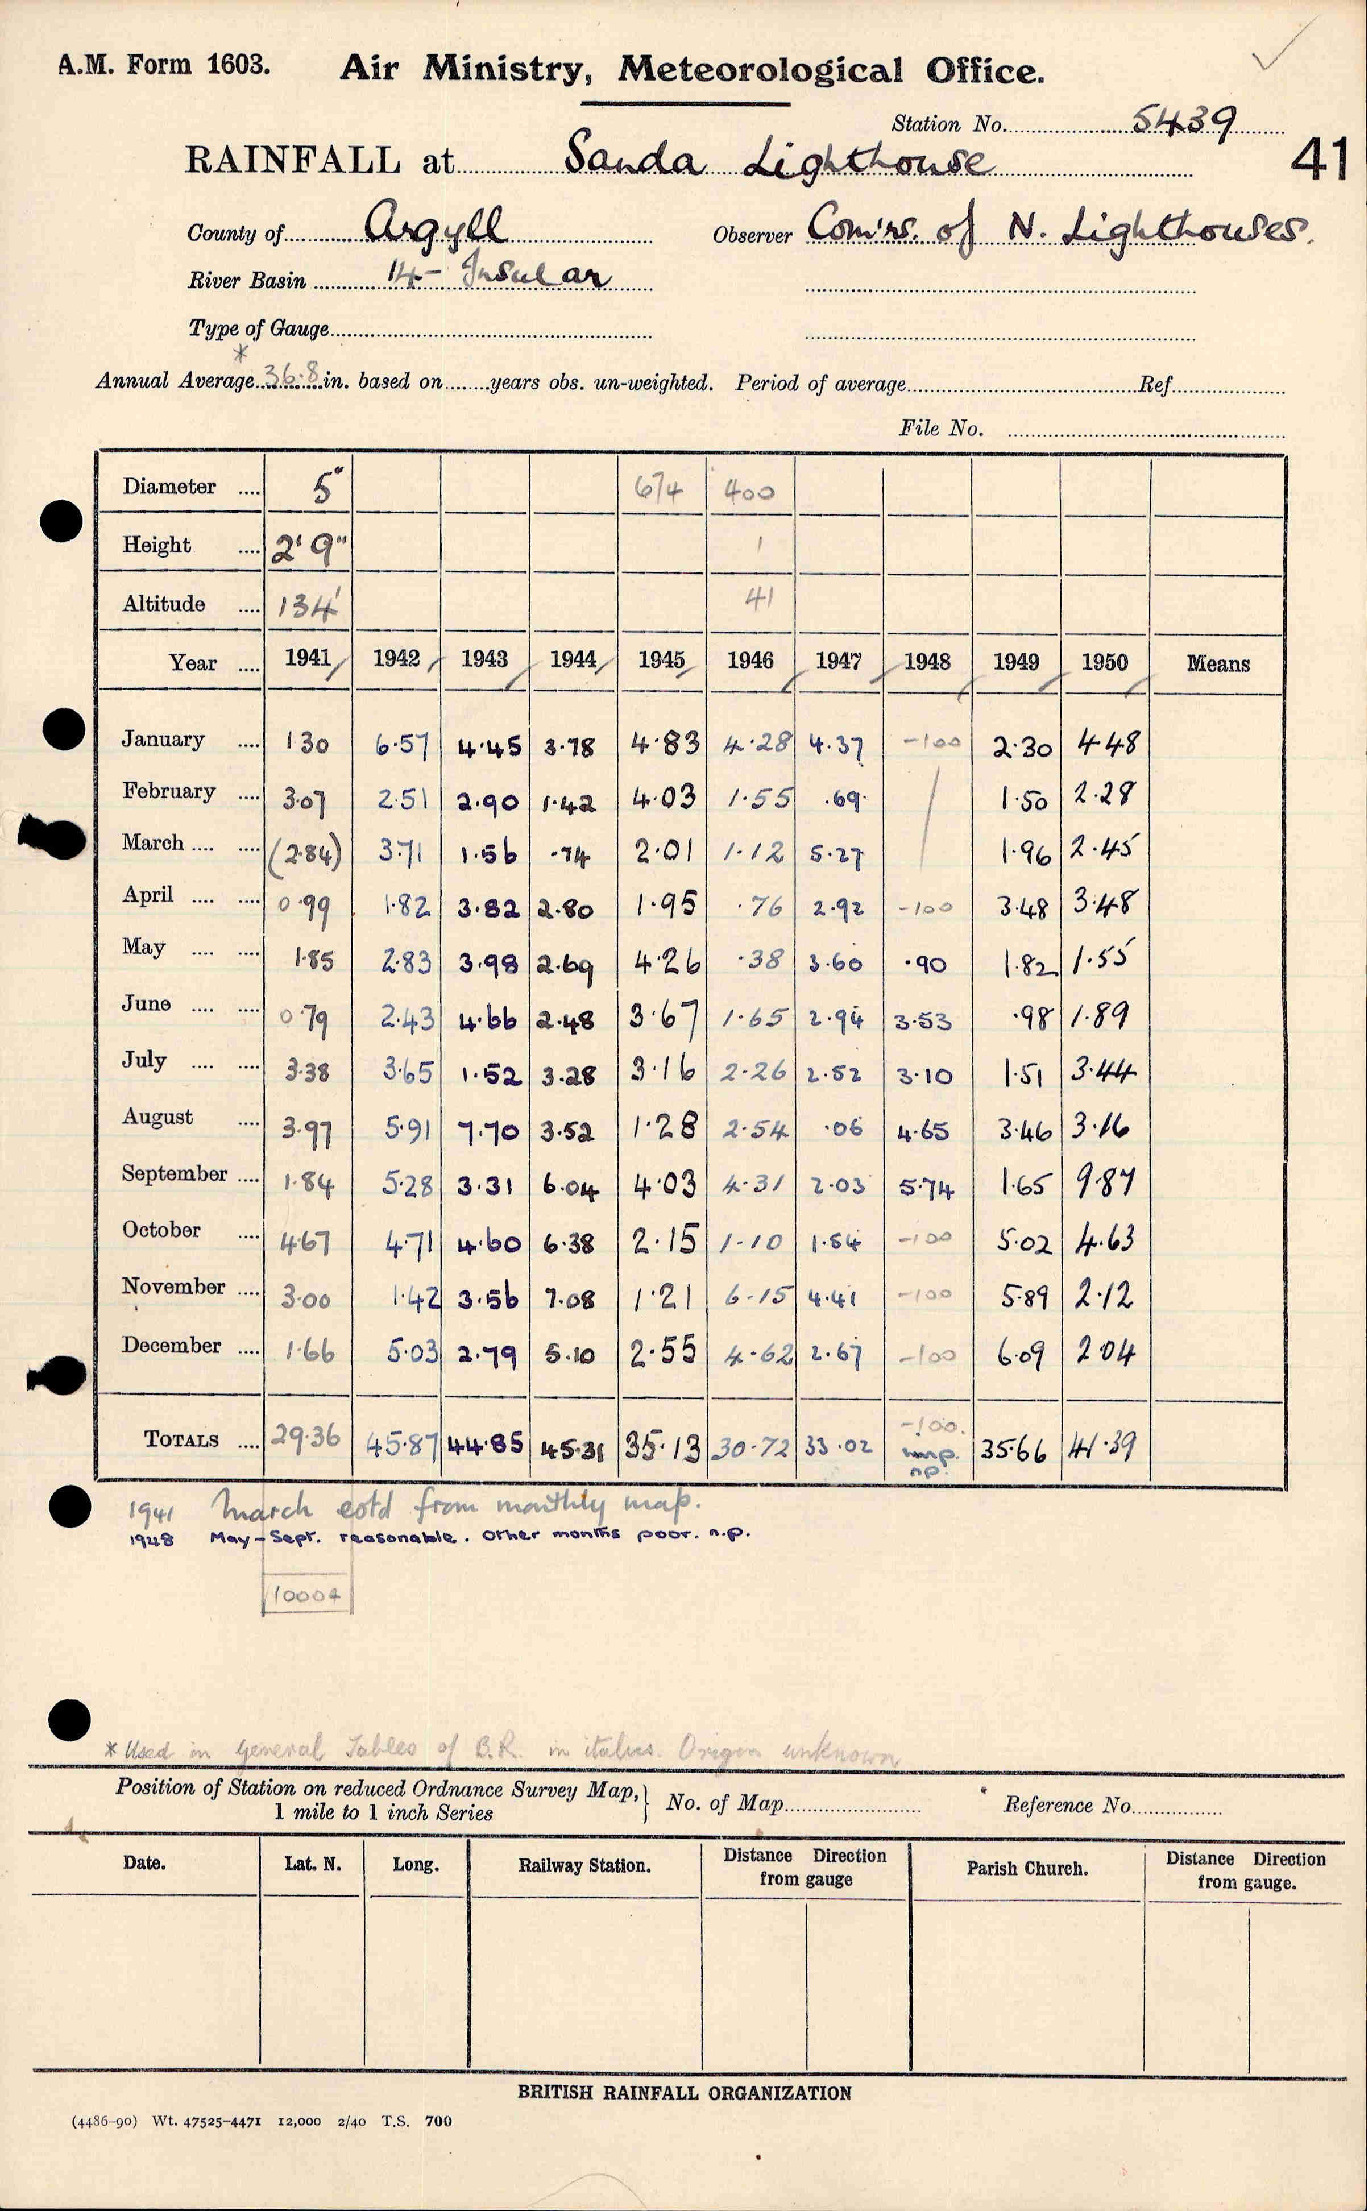 A.M. Form 1603. Air Ministry, Meteorological Office.
Station No. 5439
RAINFALL at Sanda Lighthouse 41
County of Argyll Observer Com'rs. of N. Lighthouses.
River Basin 14 - Insular
Type of Gauge
*
Annual Average 36.8 in. based on years obs. un-weighted. Period of average Ref.
File No.
Diameter 5" 674 400
Height 2' 9" 1
Altitude 134' 41
Year 1941 1942 1943 1944 1945 1946 1947 1948 1949 1950 Means
January 1.30 6.57 4.45 3.78 4.83 4.28 4.37 -100 2.30 4.48
February 3.07 2.51 2.90 1.42 4.03 1.55 .69 1.50 2.28
March (2.84) 3.71 1.56 .74 2.01 1.12 5.27 1.96 2.45
April 0.99 1.82 3.82 2.80 1.95 .76 2.92 -100 3.48 3.48
May 1.85 2.83 3.98 2.69 4.26 .38 3.60 .90 1.82 1.55
June 0.79 2.43 4.66 2.48 3.67 1.65 2.94 3.53 .98 1.89
July 3.38 3.65 1.52 3.28 3.16 2.26 2.52 3.10 1.51 3.44
August 3.97 5.91 7.70 3.52 1.28 2.54 .06 4.65 3.46 3.16
September 1.84 5.28 3.31 6.04 4.03 4.31 2.03 5.74 1.65 9.87
October 4.67 4.71 4.60 6.38 2.15 1.10 1.54 -100 5.02 4.63
November 3.00 1.42 3.56 7.08 1.21 6.15 4.41 -100 5.89 2.12
December 1.66 5.03 2.79 5.10 2.55 4.62 2.67 -100 6.09 2.04
TOTALS 29.36 45.87 44.85 45.31 35.13 30.72 33.02 -100. imp. n.p. 35.66 41.39
1941 March estd from monthly map.
1948 May-Sept. reasonable. Other months poor. n.p.
10004
* Used in General Tables of B.R. in italics. Origin unknown
Position of Station on reduced Ordnance Survey Map, 1 mile to 1 inch Series } No. of Map Reference No.
Date. Lat. N. Long. Railway Station. Distance Direction from gauge Parish Church. Distance Direction from gauge.
BRITISH RAINFALL ORGANIZATION
(4486-90) Wt. 47525-4471 12,000 2/40 T.S. 700